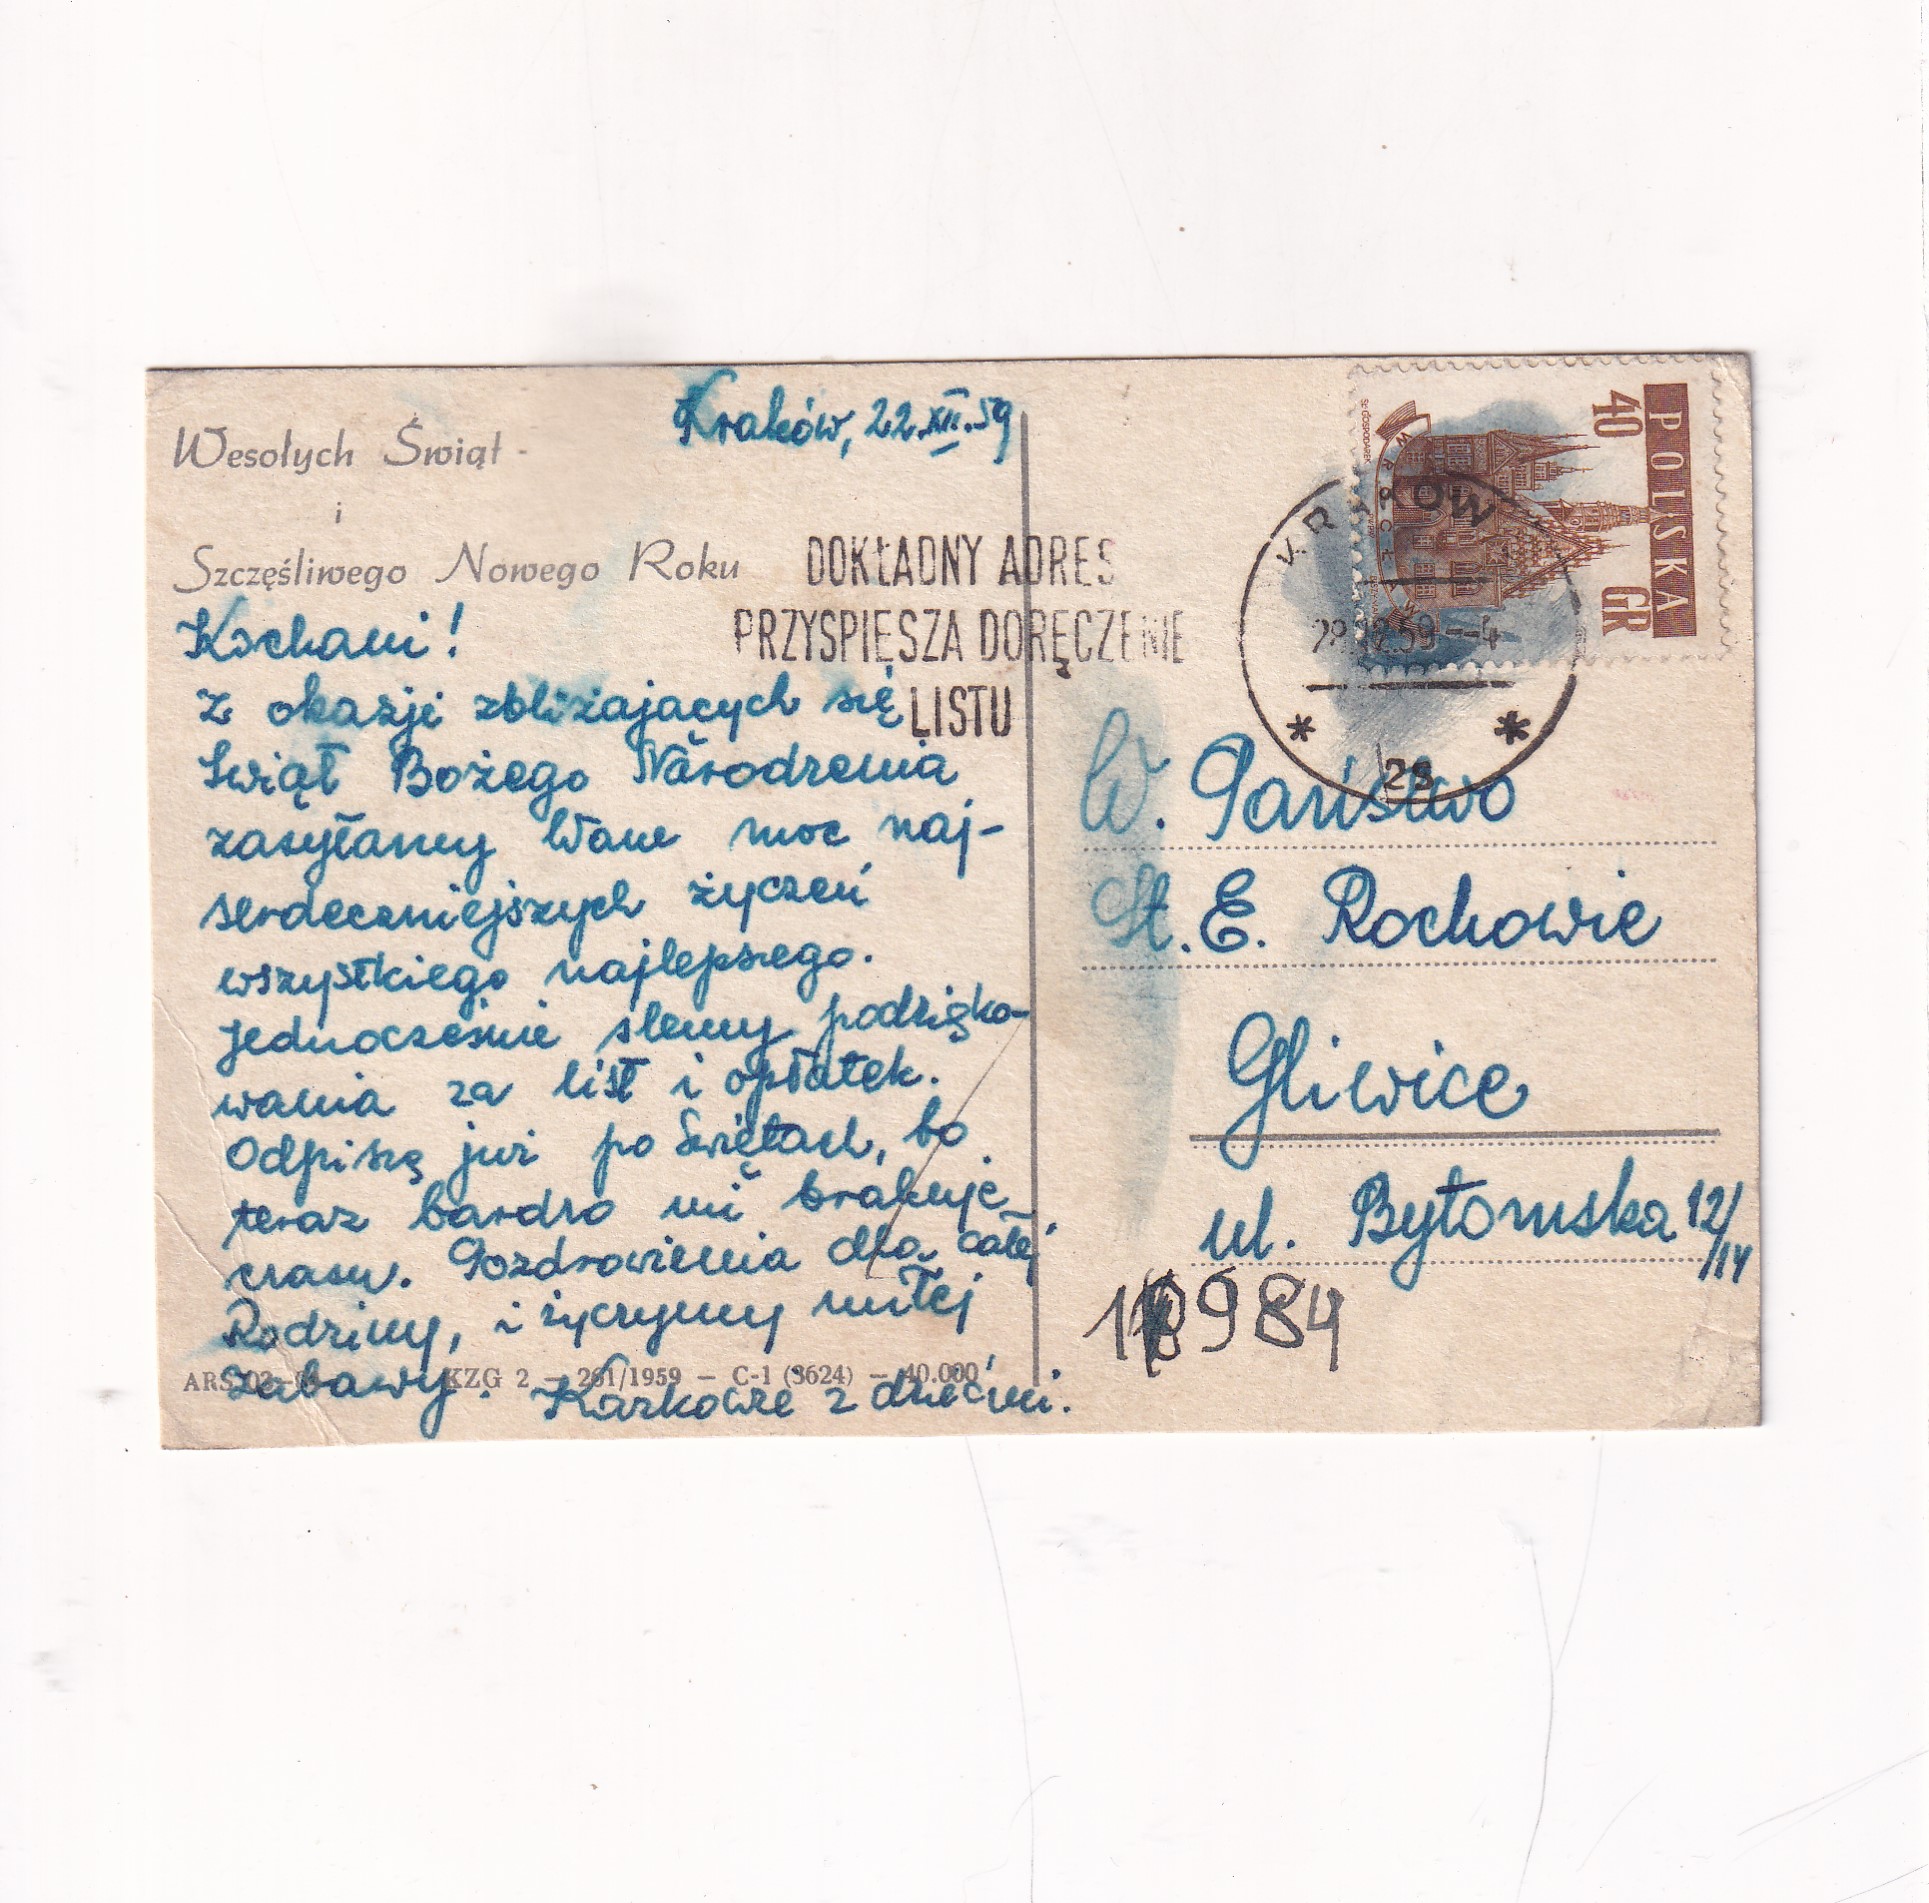 Kraków, 22.XII.59
Wesołych Świąt
i
Szczęśliwego Nowego Roku
Kochani!
Z okazji zbliżających się
Świąt Bożego Narodzenia
zasyłamy Wam moc naj-
serdeczniejszych życzeń
wszystkiego najlepszego.
Jednocześnie ślemy podzięko-
wania za list i opłatek.
Odpiszę już po Świętach, bo
teraz bardzo mi brakuje
czasu. Pozdrowienia dla całej
Rodziny, i życzymy miłej
zabawy.
z dziećmi.
KZG 2 — 261/1959 — C-1 (3624) — 40.000
DOKŁADNY ADRES
PRZYSPIESZA DORĘCZENIE
LISTU
POLSKA
40 GR
WROCŁAW
KRAKÓW
.12.59--4
* *
W. Państwo
St. E. Rochowie
Gliwice
ul. Bytomska 12/
/14